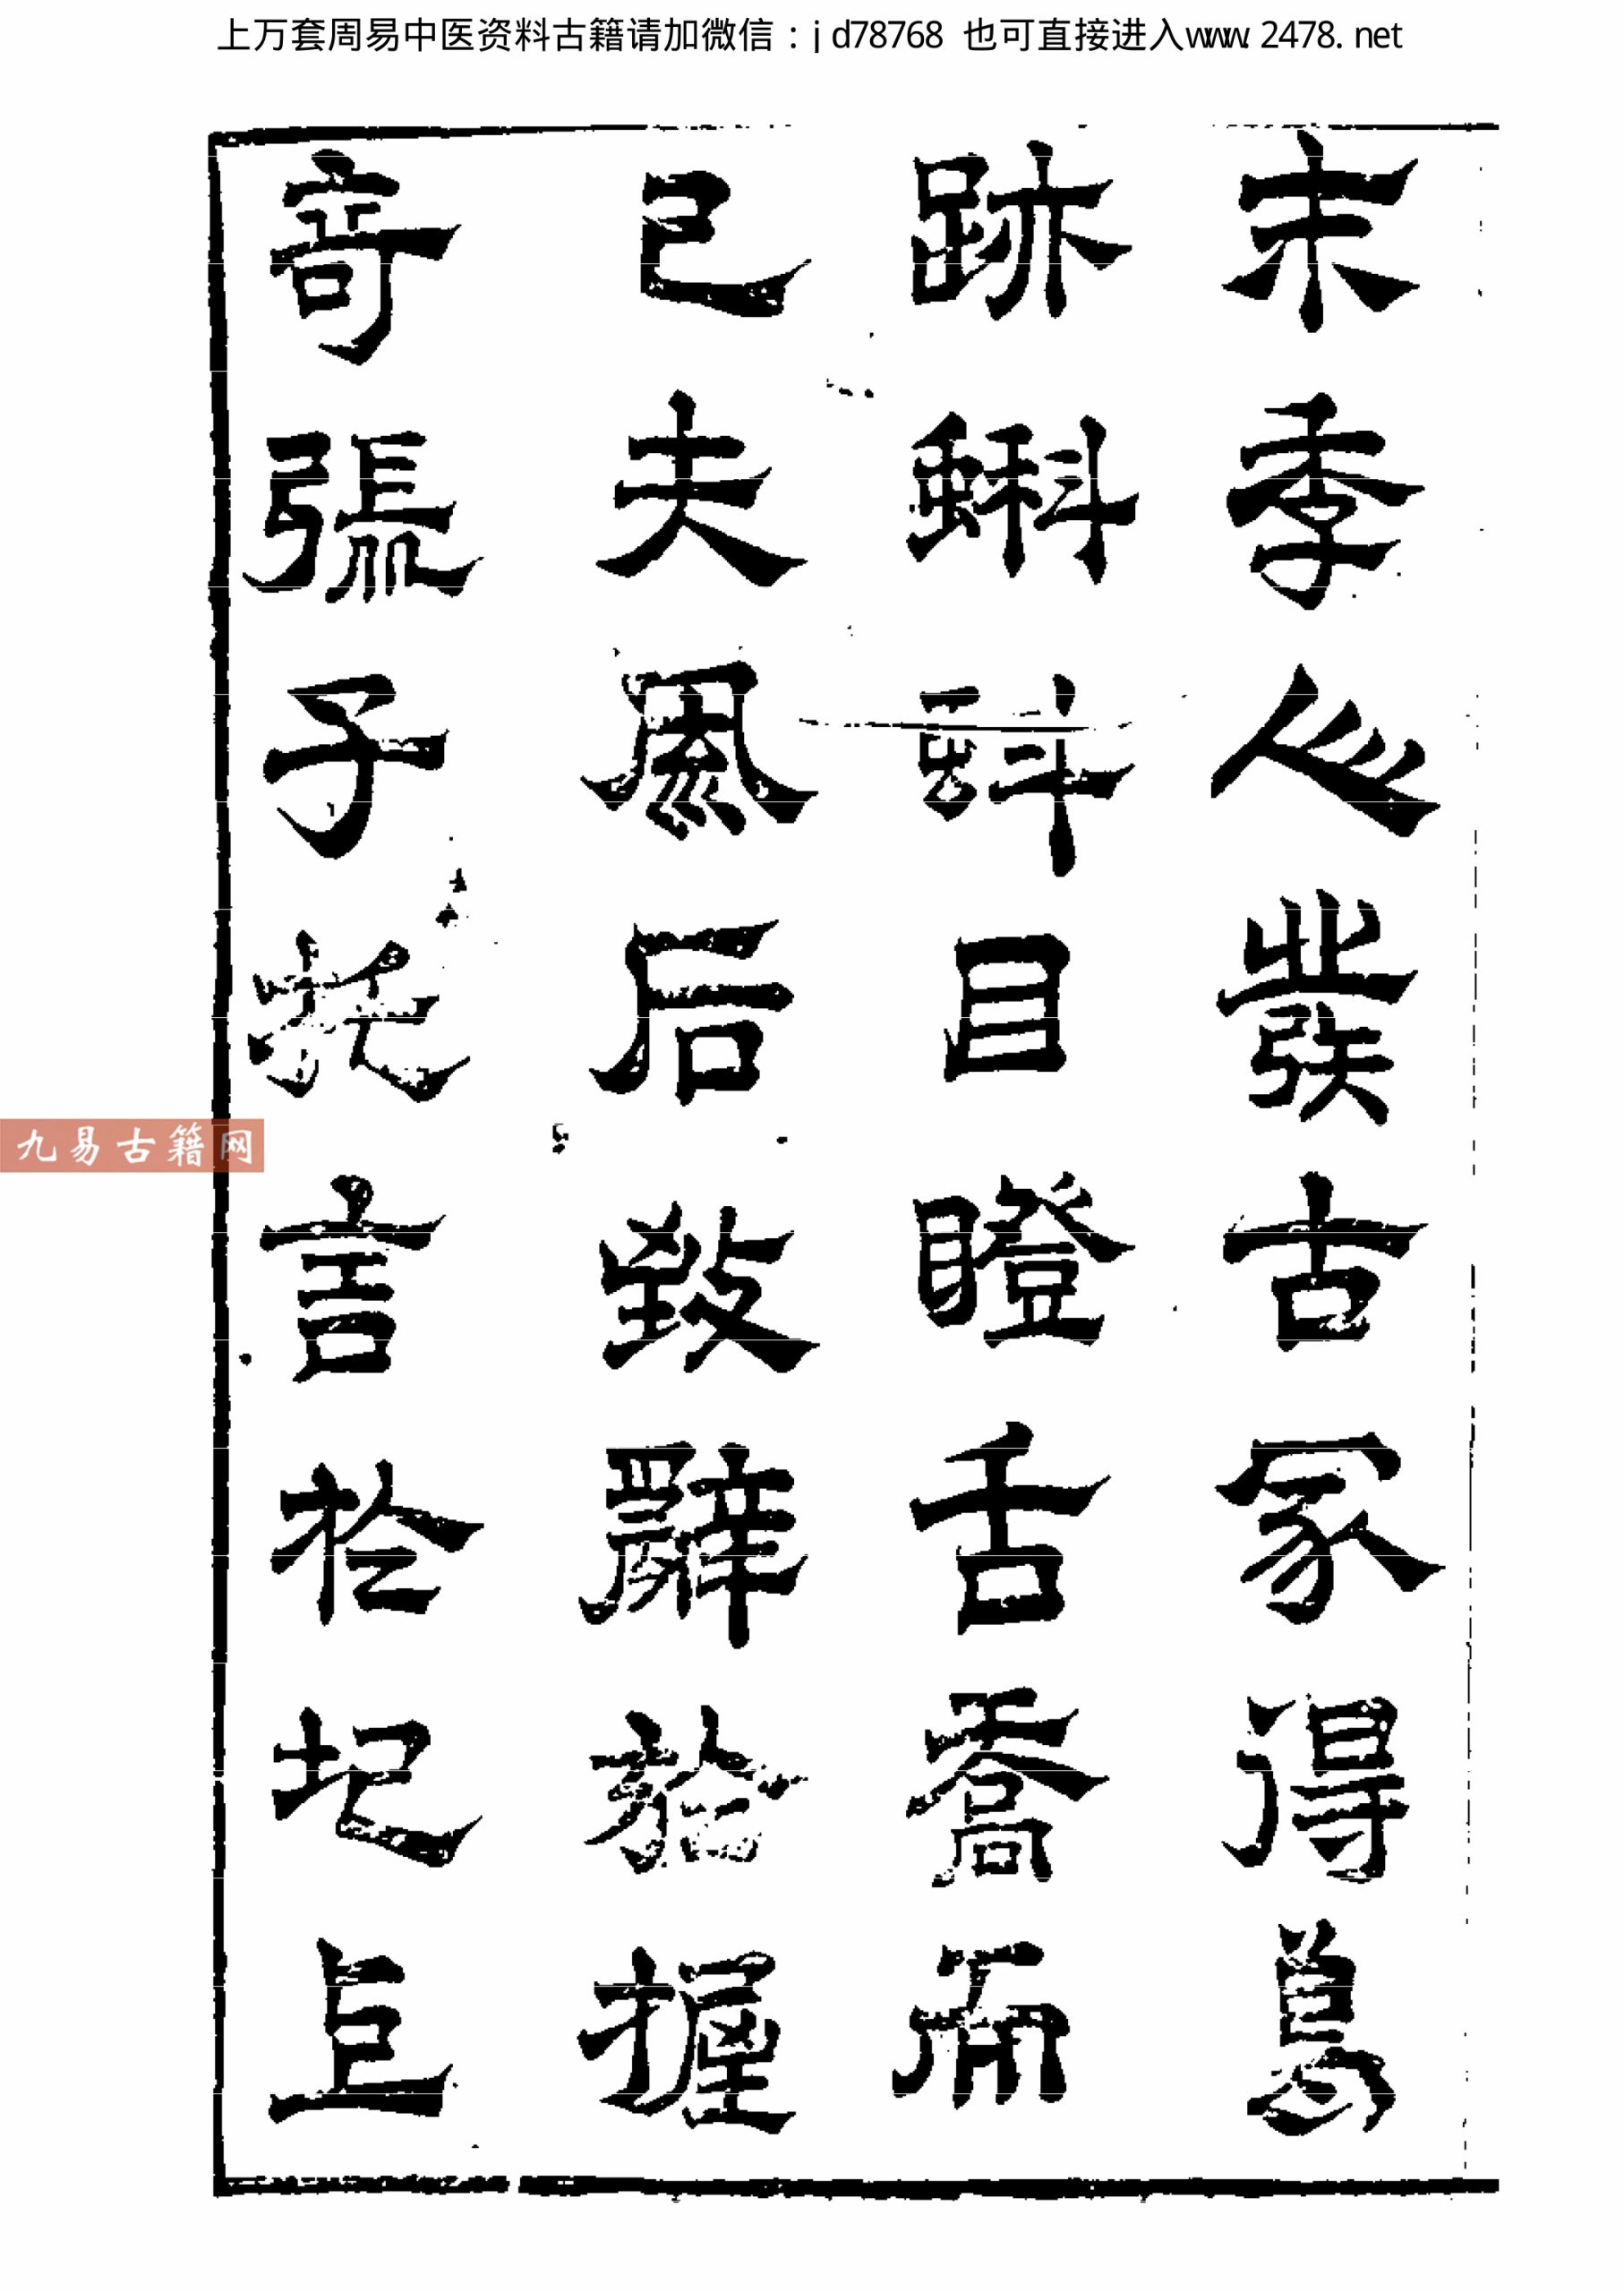 上万套周易中医资料古籍请加微信：jd78768 也可直接进入www.2478.net
末季人發古冢得鳥
跡蝌蚪目瞪舌喬而
已夫風后致辭於握
奇張子托言於圯上
九易古籍网